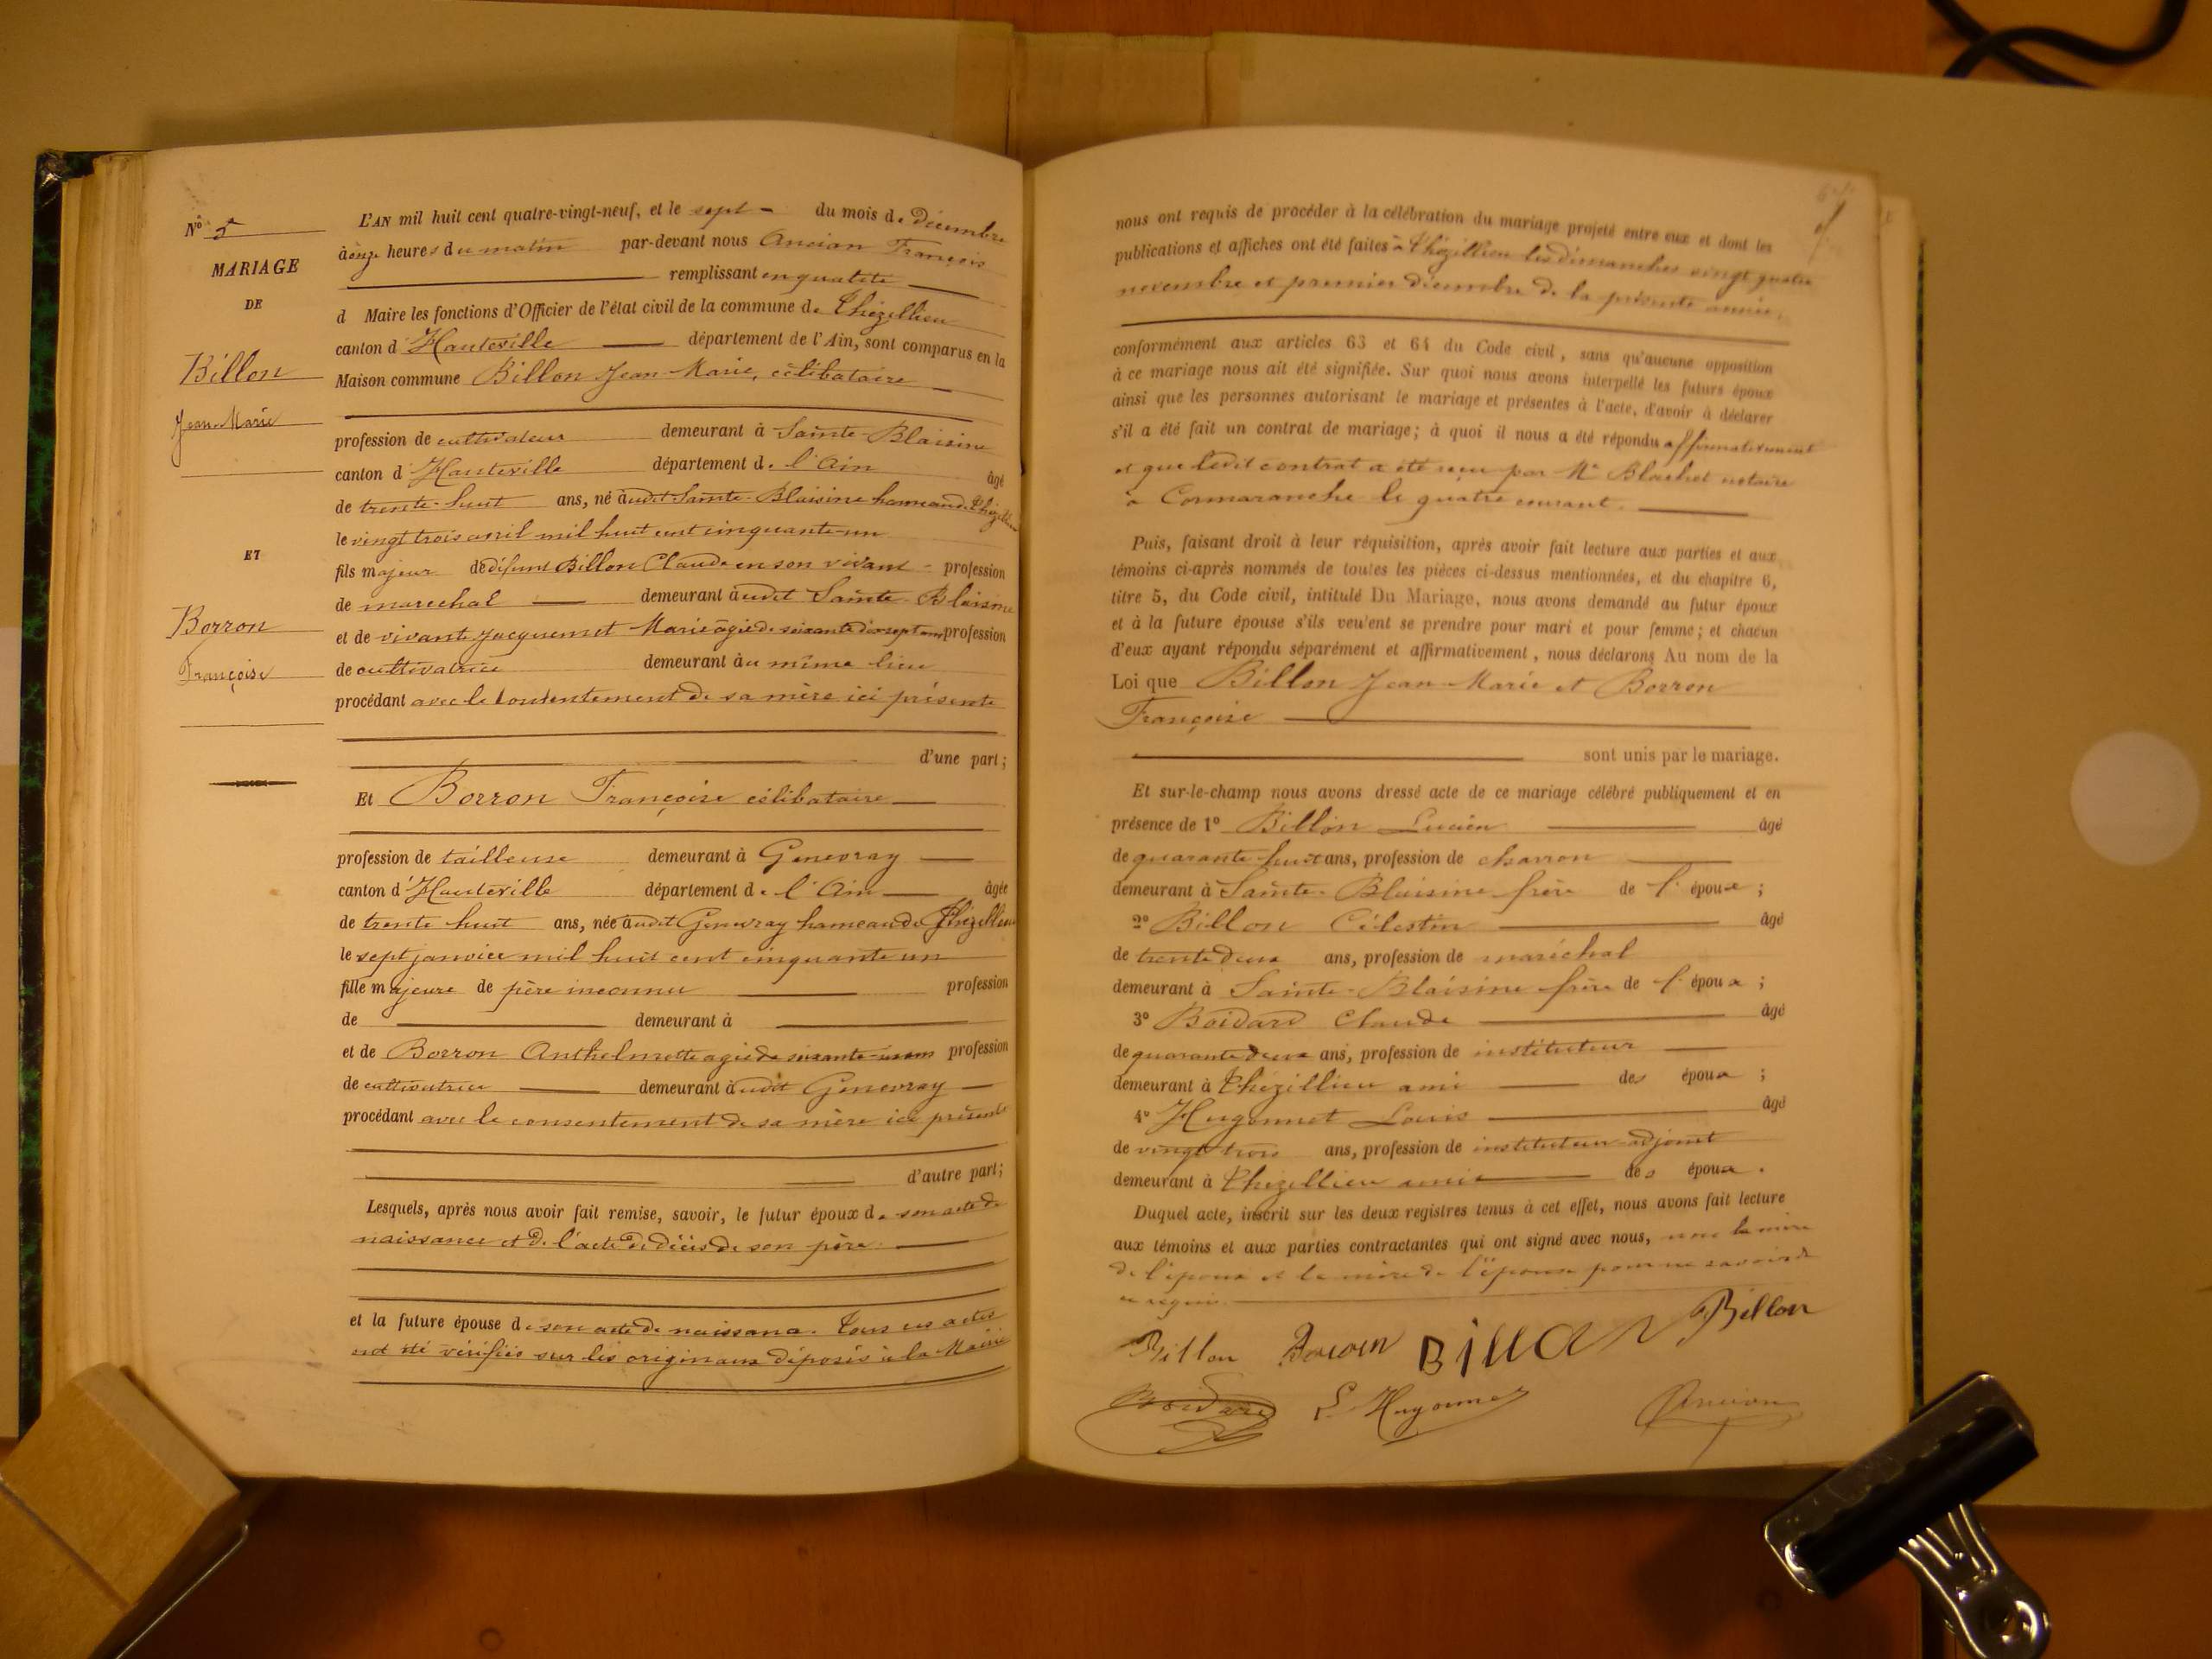 Nº 5
MARIAGE
DE
Billon
Jean-Marie
ET
Borron
Françoise
L'AN mil huit cent quatre-vingt-neuf, et le sept du mois de décembre
à onze heures du matin par-devant nous Ancian François
remplissant en qualité
d Maire les fonctions d'Officier de l'état civil de la commune de Thézillieu
canton d'Hauteville département de l'Ain, sont comparus en la
Maison commune Billon Jean-Marie, célibataire
profession de cultivateur demeurant à Sainte-Blaisine
canton d'Hauteville département de l'Ain âgé
de trente-huit ans, né audit Sainte-Blaisine hameau de Thézillieu
le vingt trois avril mil huit cent cinquante-un
fils majeur de défunt Billon Claude en son vivant profession
de maréchal demeurant audit Sainte-Blaisine
et de vivante Jacquemet Marie âgée de soixante dix sept ans profession
de cultivatrice demeurant au même lieu
procédant avec le consentement de sa mère ici présente
d'une part;
Et Borron Françoise célibataire
profession de tailleuse demeurant à Genevray
canton d'Hauteville département de l'Ain âgée
de trente huit ans, née audit Genevray hameau de Thézillieu
le sept janvier mil huit cent cinquante un
fille majeure de père inconnu profession
de demeurant à
et de Borron Anthelmette agée de soixante-un ans profession
de cultivatrice demeurant audit Genevray
procédant avec le consentement de sa mère ici présente
d'autre part;
Lesquels, après nous avoir fait remise, savoir, le futur époux de son acte de
naissance et de l'acte de décès de son père.
et la future épouse de son acte de naissance. Tous ces actes
ont été vérifiés sur les originaux déposés à la Mairie
nous ont requis de procéder à la célébration du mariage projeté entre eux et dont les
publications et affiches ont été faites à Thézillieu les dimanches vingt quatre
novembre et premier décembre de la présente année.
conformément aux articles 63 et 64 du Code civil, sans qu'aucune opposition
à ce mariage nous ait été signifiée. Sur quoi nous avons interpellé les futurs époux
ainsi que les personnes autorisant le mariage et présentes à l'acte, d'avoir à déclarer
s'il a été fait un contrat de mariage; à quoi il nous a été répondu affirmativement
et que ledit contrat a été reçu par Me Blachot notaire
à Cormaranche le quatre courant.
Puis, faisant droit à leur réquisition, après avoir fait lecture aux parties et aux
témoins ci-après nommés de toutes les pièces ci-dessus mentionnées, et du chapitre 6,
titre 5, du Code civil, intitulé Du Mariage, nous avons demandé au futur époux
et à la future épouse s'ils veu'ent se prendre pour mari et pour femme; et chacun
d'eux ayant répondu séparément et affirmativement, nous déclarons Au nom de la
Loi que Billon Jean-Marie et Borron
Françoise
sont unis par le mariage.
Et sur-le-champ nous avons dressé acte de ce mariage célébré publiquement et en
présence de 1º Billon Lucien âgé
de quarante-huit ans, profession de charron
demeurant à Sainte-Blaisine frère de l'époux;
2º Billon Célestin âgé
de trente deux ans, profession de maréchal
demeurant à Sainte-Blaisine frère de l'époux;
3º Boidard Claude âgé
de quarante deux ans, profession de instituteur
demeurant à Thézillieu ami des époux;
4º Hugonnet Louis âgé
de vingt trois ans, profession de instituteur-adjoint
demeurant à Thézillieu ami des époux.
Duquel acte, inscrit sur les deux registres tenus à cet effet, nous avons fait lecture
aux témoins et aux parties contractantes qui ont signé avec nous, non la mère
de l'époux et la mère de l'épouse pour ne savoir de
ce requis.
Billon Borron Billon Billon
Boidard L Hugonnet Ancian